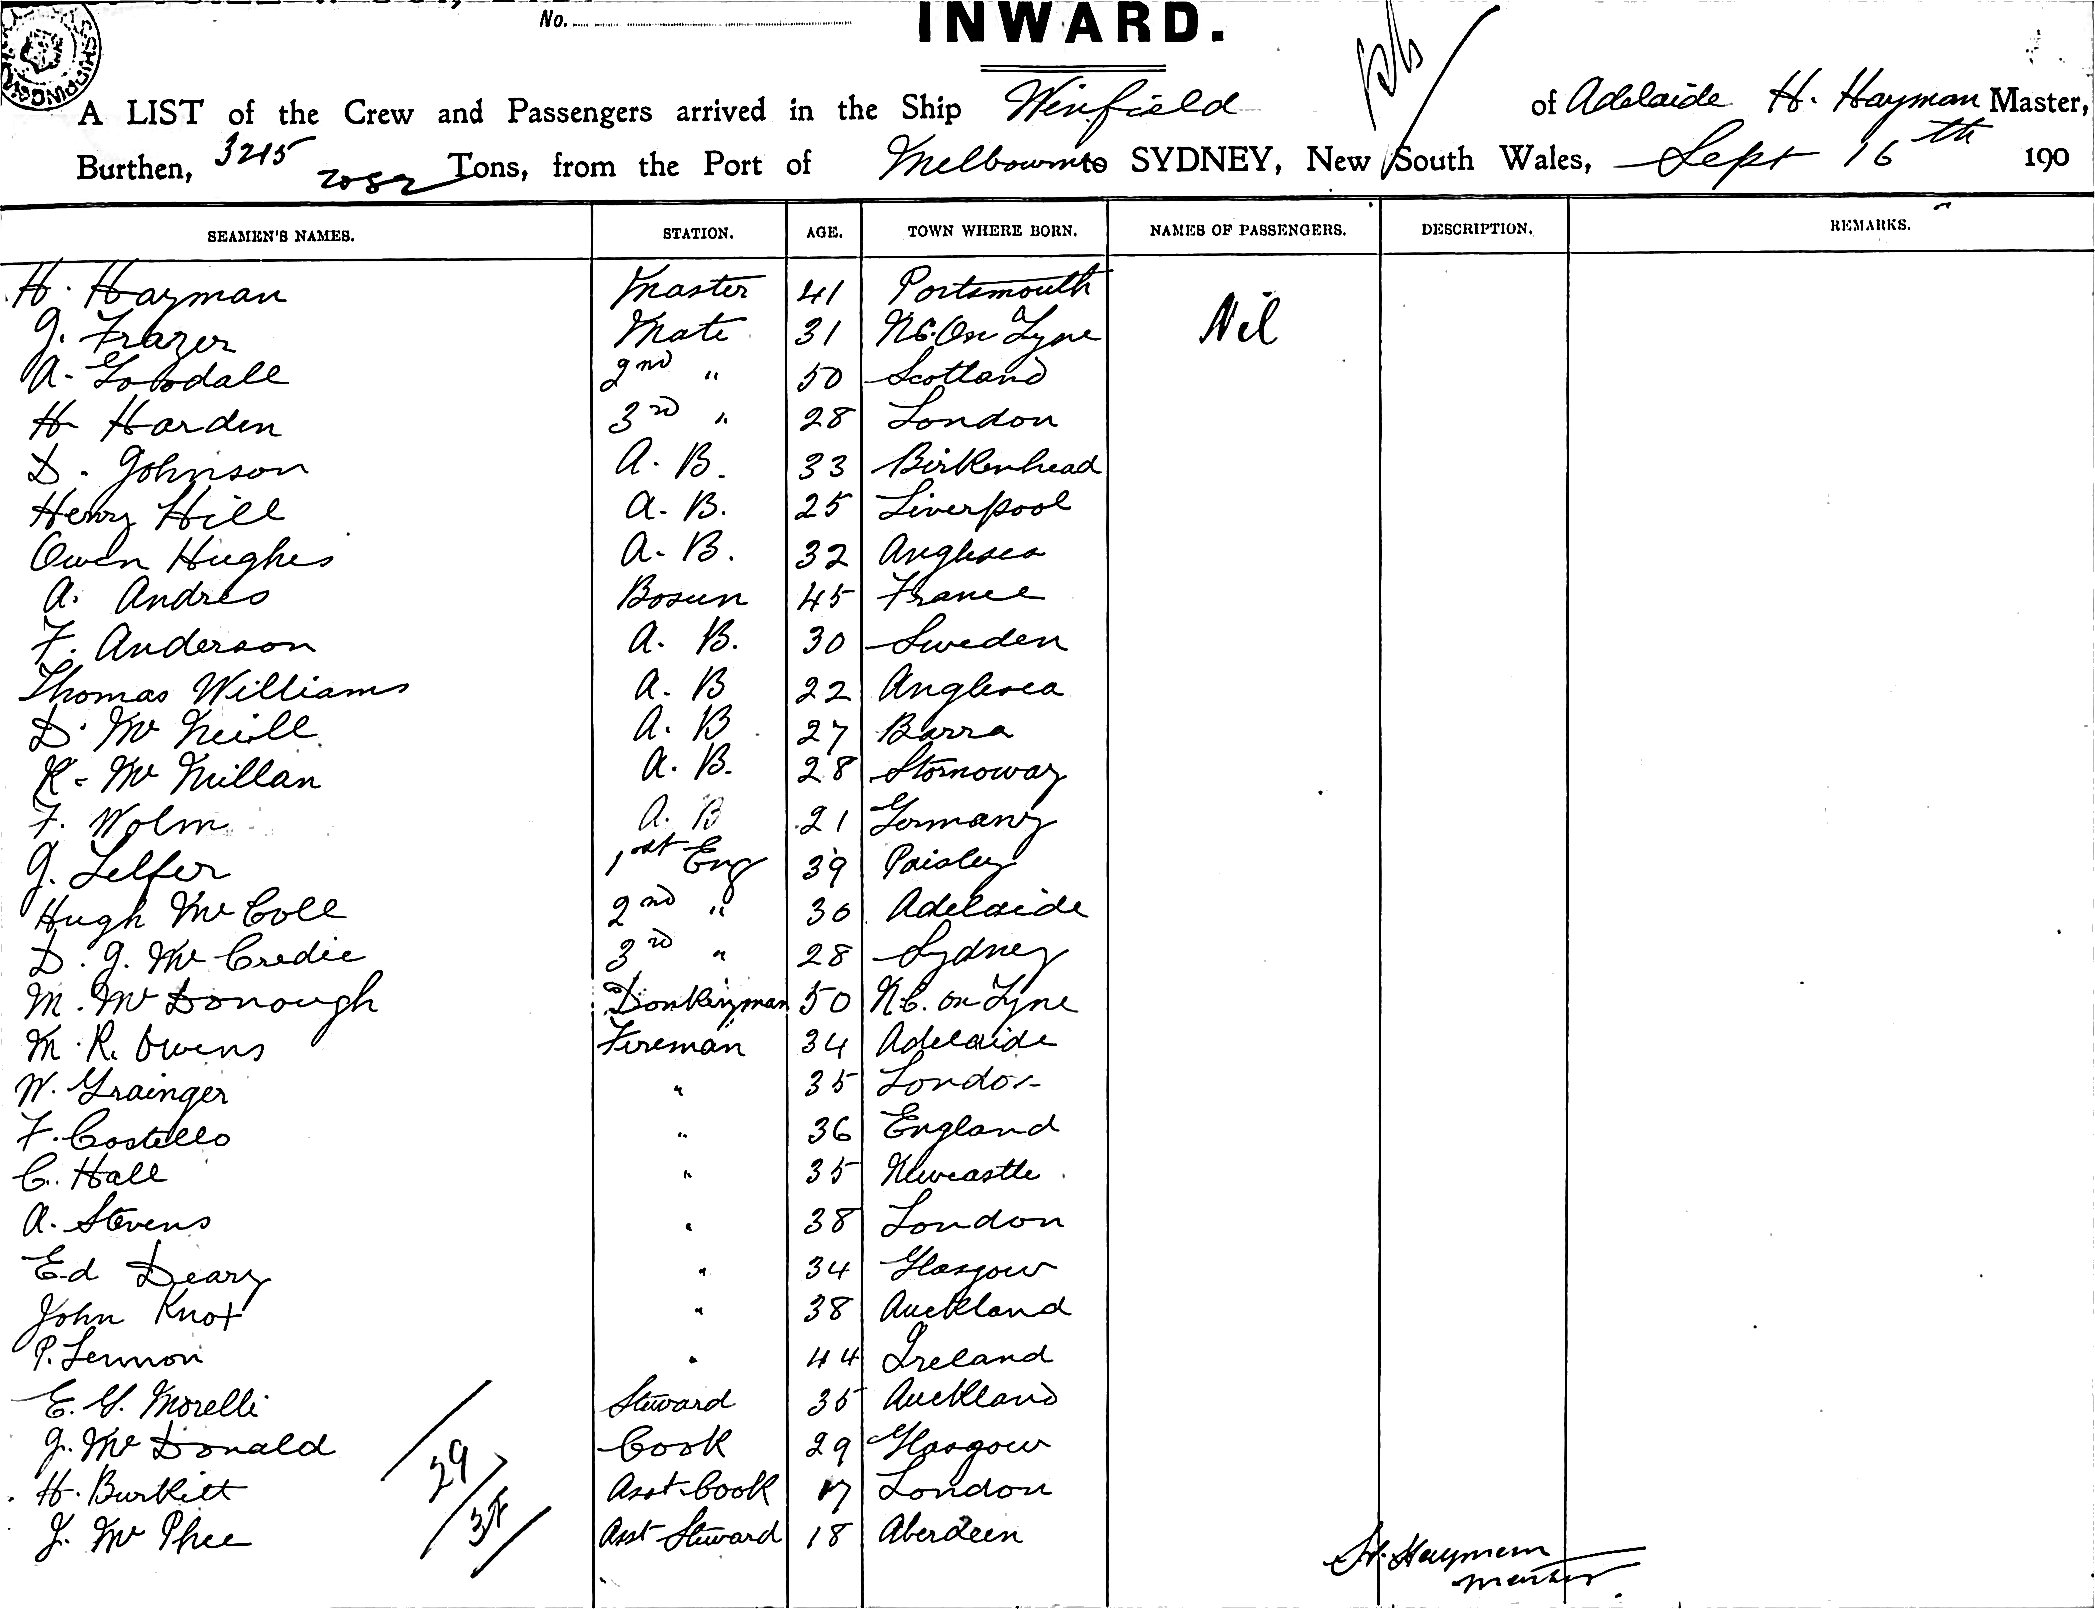 No.
INWARD.
A LIST of the Crew and Passengers arrived in the Ship Winfield of Adelaide H. Hayman Master,
Burthen, 3215 Tons, from the Port of Melbourne to SYDNEY, New South Wales, Sept 16th 190
2082
SEAMEN'S NAMES. STATION. AGE. TOWN WHERE BORN. NAMES OF PASSENGERS. DESCRIPTION. REMARKS.
H. Hayman Master 41 Portsmouth
J. Frazer Mate 31 N.C. On Tyne Nil
A. Goodall 2nd " 50 Scotland
H Harden 3rd " 28 London
D. Johnson A. B. 33 Birkenhead
Henry Hill A. B. 25 Liverpool
Owen Hughes A. B. 32 Anglesea
A. Andres Bosun 45 France
F. Anderson A. B. 30 Sweden
Thomas Williams A. B 22 Anglesea
D. Mc Neill A. B 27 Barra
K. Mc Millan A. B. 28 Stornoway
F. Wolm A. B 21 Germany
J. Telfer 1st Eng 39 Paisley
Hugh Mc Coll 2nd " 30 Adelaide
D. J. Mc Credie 3rd " 28 Sydney
M. Mc Donough Donkeyman 50 N.C. on Tyne
M. R. Owens Fireman 34 Adelaide
W. Grainger " 35 London
F. Costello " 36 England
C. Hall " 35 Newcastle
A. Stevens " 38 London
Ed Deary " 34 Glasgow
John Knox " 38 Auckland
P. Lennon " 44 Ireland
E. G. Morelli Steward 35 Auckland
J. Mc Donald Cook 29 Glasgow
29
H. Burkitt Asst Cook 17 London
J. Mc Phee Asst Steward 18 Aberdeen
H. Hayman
Master